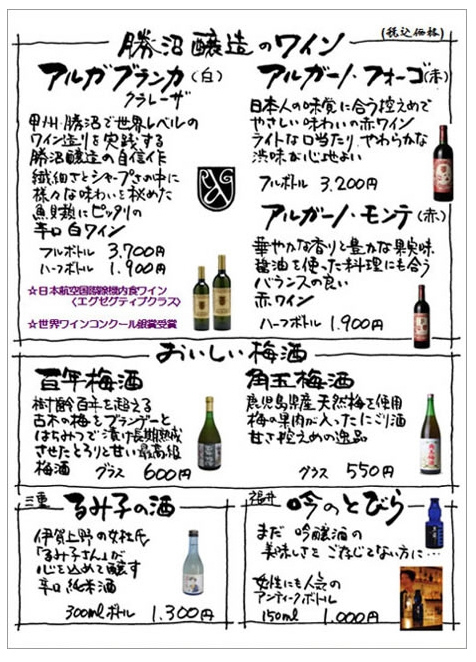 (税込価格)
勝沼醸造のワイン
アルガブランカ(白)
クラレーザ
甲州・勝沼で世界レベルの
ワイン造りを実践する
勝沼醸造の自信作
繊細さとシャープさの中に
様々な味わいを秘めた
魚貝類にピッタリの
辛口白ワイン
フルボトル 3,700円
ハーフボトル 1,900円
☆日本航空国際線機内食ワイン
〈エグゼグティブクラス〉
☆世界ワインコンクール銀賞受賞
アルガーノ・フォーゴ(赤)
日本人の味覚に合う控えめで
やさしい味わいの赤ワイン
ライトな口当たり、やわらかな
渋味が心地よい
フルボトル 3,200円
アルガーノ・モンテ(赤)
華やかな香りと豊かな果実味
醤油を使った料理にも合う
バランスの良い
赤ワイン
ハーフボトル 1,900円
おいしい梅酒
百年梅酒
樹齢百年を超える
古木の梅をブランデーと
はちみつで漬け長期熟成
させたとろりと甘い最高級
梅酒 グラス 600円
角玉梅酒
鹿児島県産天然梅を使用
梅の果肉が入ったにごり酒
甘さ控えめの逸品
グラス 550円
三重 るみ子の酒
伊賀上野の女杜氏
「るみ子さん」が
心を込めて醸す
辛口純米酒
300mlボトル 1,300円
福井 吟のとびら
まだ 吟醸酒の
美味しさを ご存じでない方に…
女性にも人気の
アンティークボトル
150ml 1,000円